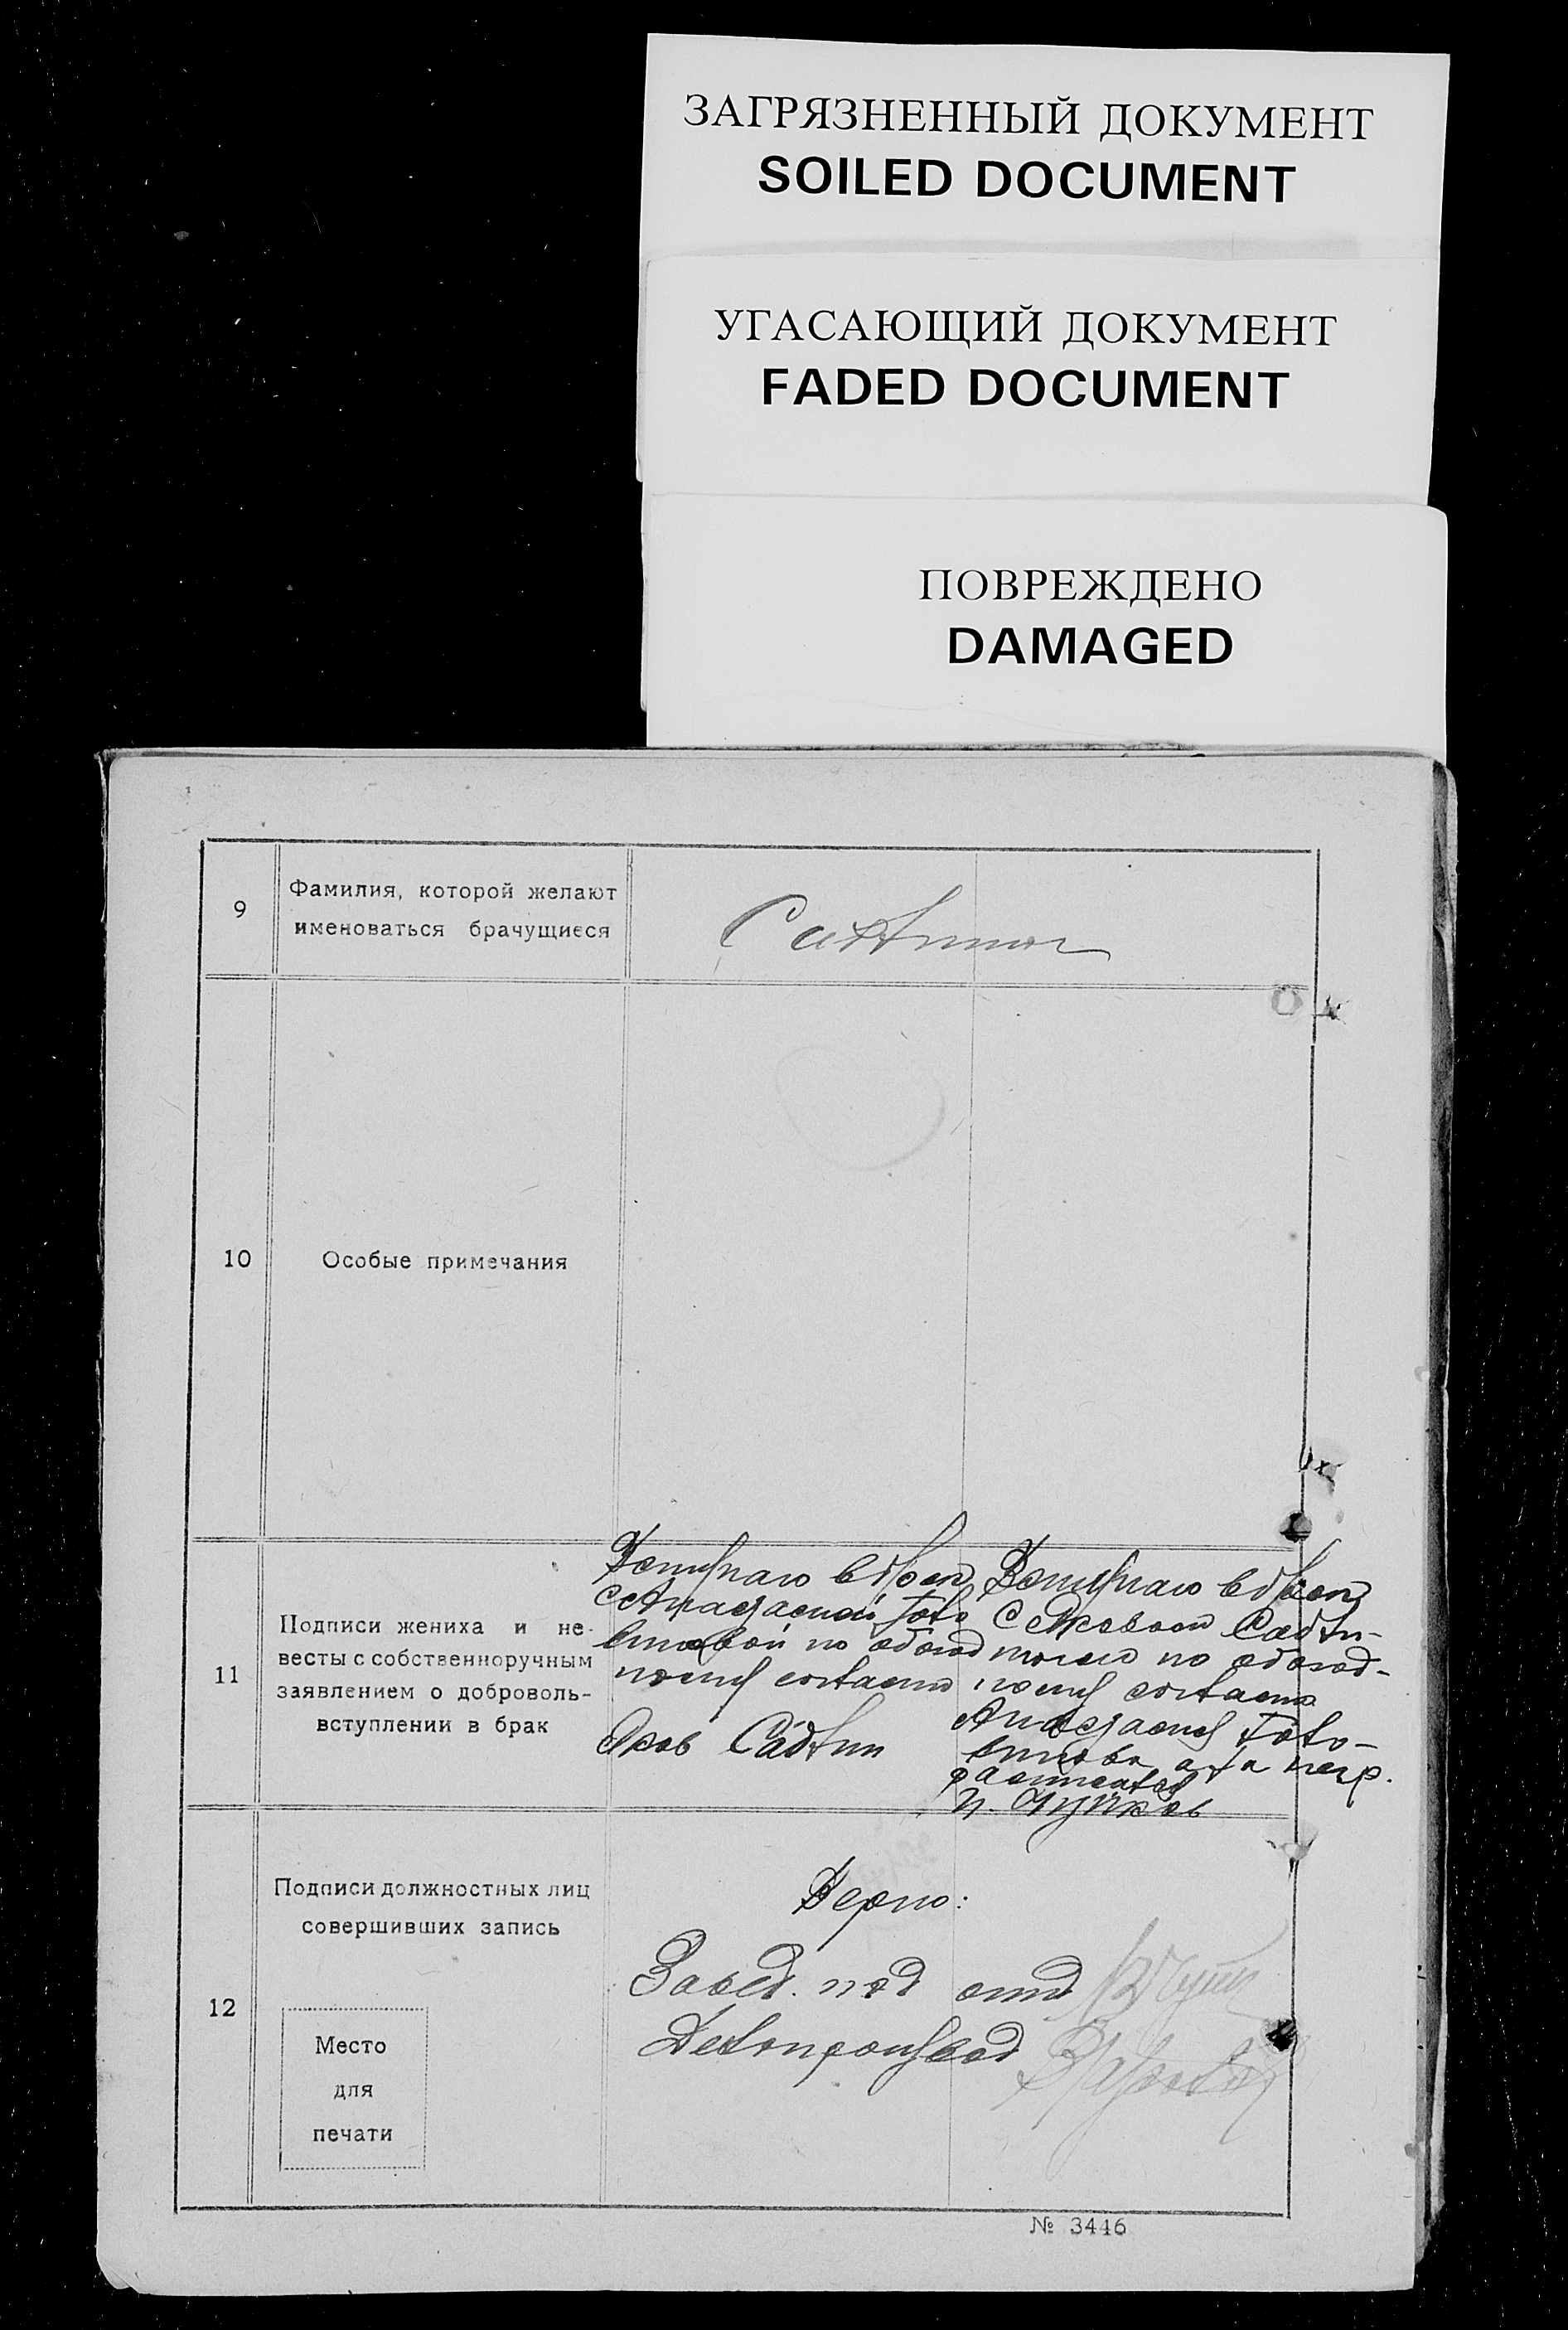 ЗАГРЯЗНЕННЫЙ ДОКУМЕНТ
SOILED DOCUMENT
УГАСАЮЩИЙ ДОКУМЕНТ
FADED DOCUMENT
ПОВРЕЖДЕНО
DAMAGED
9
Фамилия, которой желают
именоваться брачущиеся
10
Особые примечания
11
Подписи жениха и не-
весты с собственноручным
заявлением о доброволь-
вступлении в брак
Вступаю в брак
по обоюд
ному согласию
Яков
Вступаю в брак
с Яковом
по обоюд-
ному согласию
12
Подписи должностных лиц
совершивших запись
Место
для
печати
Верно:
Завед. под отд
Делопроизвод
№ 3446